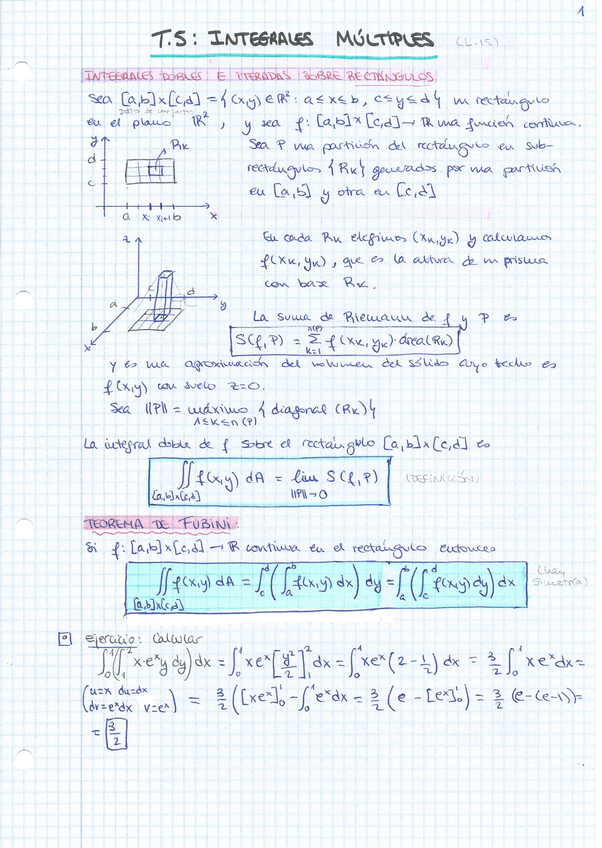 1
T.5: INTEGRALES MÚLTIPLES (L.15)
INTEGRALES DOBLES E ITERADAS SOBRE RECTÁNGULOS
Sea [a,b]x[c,d] = {(x,y) ∈ ℝ²: a ≤ x ≤ b, c ≤ y ≤ d} un rectángulo
en el plano ℝ², y sea f: [a,b]x[c,d] → ℝ una función continua.
y d c a xi xi+1 b x Rk
Sea P una partición del rectángulo en sub-
rectángulos {Rk} generados por una partición
en [a,b] y otra en [c,d]
z a b c d y x
En cada Rk elegimos (xk,yk) y calculamos
f(xk,yk), que es la altura de un prisma
con base Rk.
La suma de Riemann de f y P es
S(f,P) = Σ_{k=1}^{n(P)} f(xk,yk)·área(Rk)
y es una aproximación del volumen del sólido cuyo techo es
f(x,y) con suelo z=0.
Sea ||P|| = máximo {diagonal (Rk)}
1≤k≤n(P)
La integral doble de f sobre el rectángulo [a,b]x[c,d] es
∬_{[a,b]x[c,d]} f(x,y) dA = lim_{||P||→0} S(f,P) (DEFINICIÓN)
TEOREMA DE FUBINI:
Si f: [a,b]x[c,d] → ℝ continua en el rectángulo entonces
∬_{[a,b]x[c,d]} f(x,y) dA = ∫_c^d (∫_a^b f(x,y) dx) dy = ∫_a^b (∫_c^d f(x,y) dy) dx (hay simetría)
Ejercicio: Calcular
∫_0^1 (∫_1^2 x·e^x y dy) dx = ∫_0^1 xe^x [y²/2]_1^2 dx = ∫_0^1 xe^x (2 - 1/2) dx = 3/2 ∫_0^1 xe^x dx =
(u=x du=dx dv=e^x dx v=e^x) = 3/2 ([xe^x]_0^1 - ∫_0^1 e^x dx = 3/2 (e - [e^x]_0^1) = 3/2 (e-(e-1)) =
= 3/2